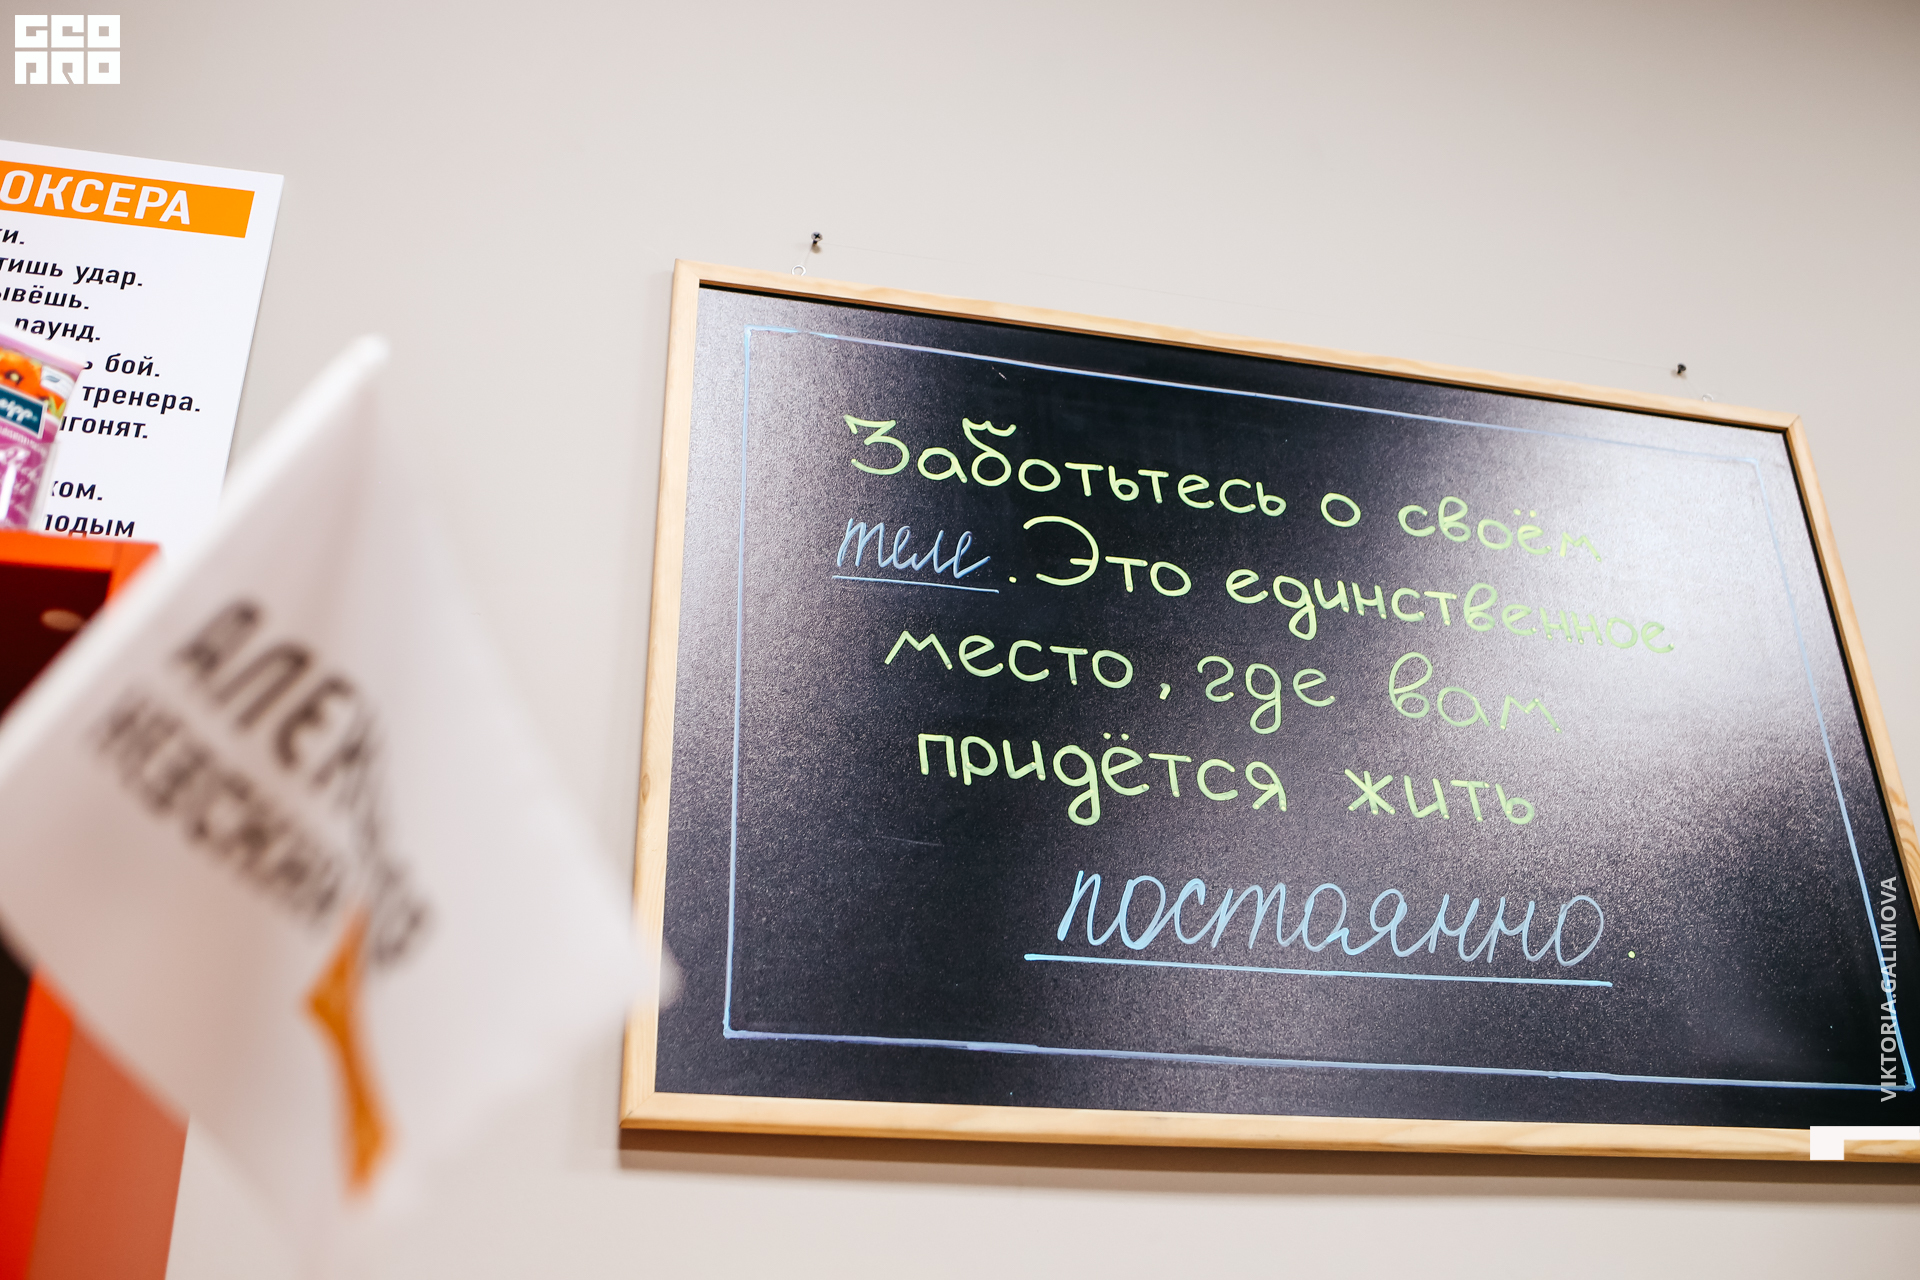 GEO
PRO
ОКСЕРА
удар.
раунд.
бой.
тренера.
Заботьтесь о своём
теле. Это единственное
место, где вам
придётся жить
постоянно.
VIKTORIA.GALIMOVA